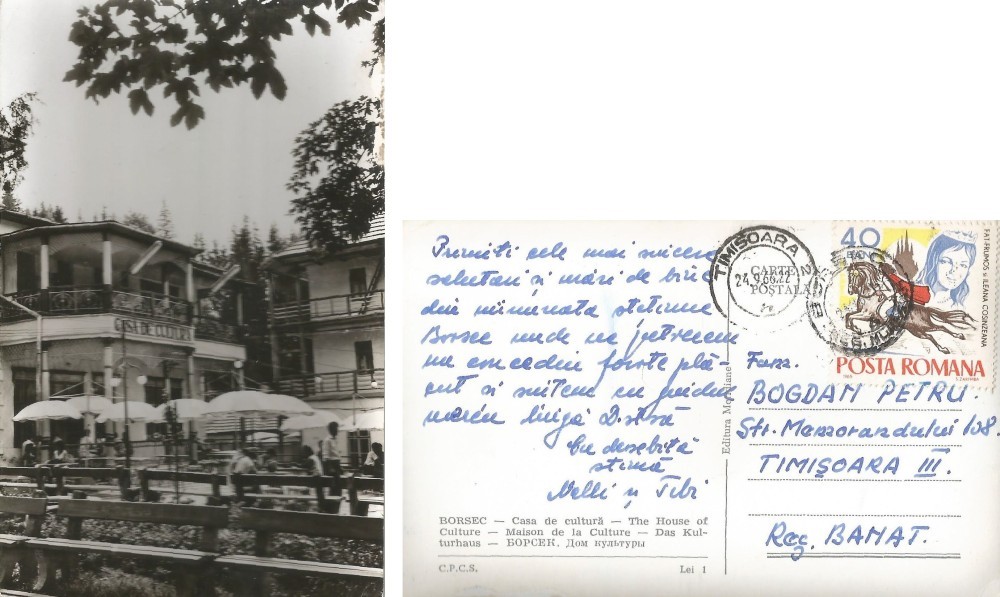 CASA DE CULTURĂ
Primiti cele mai sincere
salutari și mări de bine
din minunata statiune
Borsec unde ne petrecem
un concediu foarte plă-
cut si suntem cu gandul
mereu lingă Dstră
Cu deosebită
stimă
Nelli și Tibi
BORSEC — Casa de cultură — The House of
Culture — Maison de la Culture — Das Kul-
turhaus — БОРСЕК. Дом культуры
C.P.C.S.
Lei 1
Editura Meridiane
TIMIȘOARA
CARTE
POȘTALĂ
40
BANI
FĂT-FRUMOS ȘI ILEANA COSINZEANA
POSTA ROMANA
Fam.
BOGDAN PETRU.
Str. Memorandului 108.
TIMIȘOARA III.
Reg. BANAT.